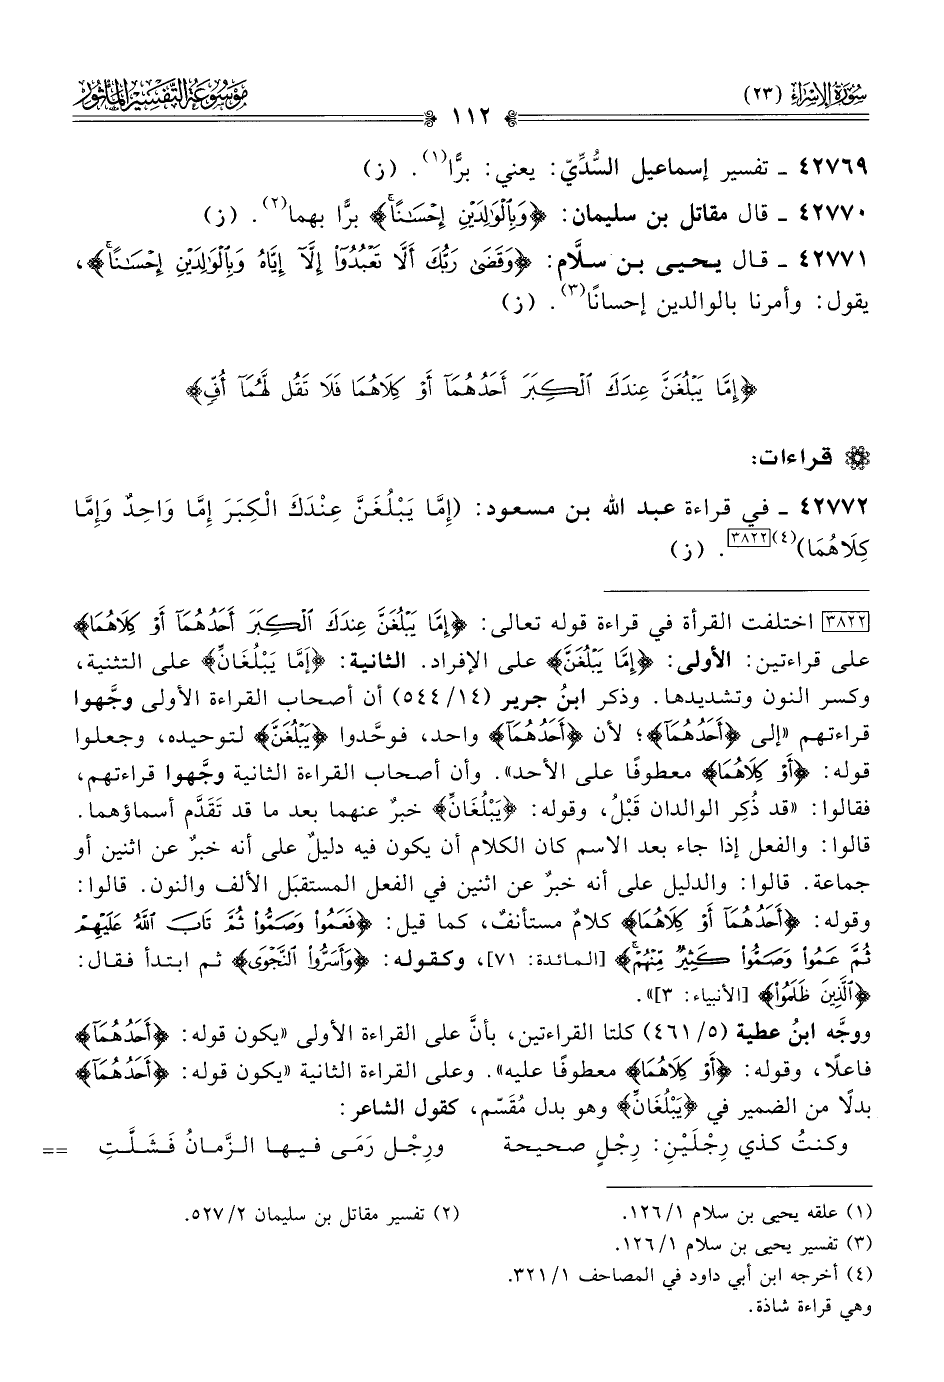 سُورَةُ الإِسْرَاءِ (٢٣)
١١٢
مَوْسُوعَةُ التَّفْسِيرِ المَأْثُور
٤٢٧٦٩ ـ تفسير إسماعيل السُّدِّيّ: يعني: برًّا(١). (ز)
٤٢٧٧٠ ـ قال مقاتل بن سليمان: ﴿وَبِالْوَالِدَيْنِ إِحْسَٰنًا﴾ برًّا بهما(٢). (ز)
٤٢٧٧١ ـ قال يحيى بن سلَّام: ﴿وَقَضَىٰ رَبُّكَ أَلَّا تَعْبُدُوٓا۟ إِلَّآ إِيَّاهُ وَبِالْوَالِدَيْنِ إِحْسَٰنًا﴾،
يقول: وأمرنا بالوالدين إحسانًا(٣). (ز)
﴿إِمَّا يَبْلُغَنَّ عِندَكَ ٱلْكِبَرَ أَحَدُهُمَآ أَوْ كِلَاهُمَا فَلَا تَقُل لَّهُمَآ أُفٍّ﴾
قراءات:
٤٢٧٧٢ ـ في قراءة عبد الله بن مسعود: (إِمَّا يَبْلُغَنَّ عِنْدَكَ الْكِبَرَ إِمَّا وَاحِدٌ وَإِمَّا
كِلَاهُمَا)(٤)[٣٨٢٢]. (ز)
[٣٨٢٢] اختلفت القرأة في قراءة قوله تعالى: ﴿إِمَّا يَبْلُغَنَّ عِندَكَ ٱلْكِبَرَ أَحَدُهُمَآ أَوْ كِلَاهُمَا﴾
على قراءتين: الأولى: ﴿إِمَّا يَبْلُغَنَّ﴾ على الإفراد. الثانية: ﴿إِمَّا يَبْلُغَانِّ﴾ على التثنية،
وكسر النون وتشديدها. وذكر ابنُ جرير (١٤/ ٥٤٤) أن أصحاب القراءة الأولى وجَّهوا
قراءتهم «إلى ﴿أَحَدُهُمَآ﴾؛ لأن ﴿أَحَدُهُمَآ﴾ واحد، فوحَّدوا ﴿يَبْلُغَنَّ﴾ لتوحيده، وجعلوا
قوله: ﴿أَوْ كِلَاهُمَا﴾ معطوفًا على الأحد». وأن أصحاب القراءة الثانية وجَّهوا قراءتهم،
فقالوا: «قد ذُكِر الوالدان قَبْلُ، وقوله: ﴿يَبْلُغَانِّ﴾ خبرٌ عنهما بعد ما قد تَقَدَّم أسماؤهما.
قالوا: والفعل إذا جاء بعد الاسم كان الكلام أن يكون فيه دليلٌ على أنه خبرٌ عن اثنين أو
جماعة. قالوا: والدليل على أنه خبرٌ عن اثنين في الفعل المستقبَل الألف والنون. قالوا:
وقوله: ﴿أَحَدُهُمَآ أَوْ كِلَاهُمَا﴾ كلامٌ مستأنَف، كما قيل: ﴿فَعَمُوا۟ وَصَمُّوا۟ ثُمَّ تَابَ ٱللَّهُ عَلَيْهِمْ
ثُمَّ عَمُوا۟ وَصَمُّوا۟ كَثِيرٌ مِّنْهُمْ﴾ [المائدة: ٧١]، وكقوله: ﴿وَأَسَرُّوا۟ ٱلنَّجْوَى﴾ ثم ابتدأ فقال:
﴿ٱلَّذِينَ ظَلَمُوا۟﴾ [الأنبياء: ٣]».
ووجَّه ابنُ عطية (٥/ ٤٦١) كلتا القراءتين، بأنَّ على القراءة الأولى «يكون قوله: ﴿أَحَدُهُمَآ﴾
فاعلًا، وقوله: ﴿أَوْ كِلَاهُمَا﴾ معطوفًا عليه». وعلى القراءة الثانية «يكون قوله: ﴿أَحَدُهُمَآ﴾
بدلًا من الضمير في ﴿يَبْلُغَانِّ﴾ وهو بدل مُقَسّم، كقول الشاعر:
وكنتُ كذي رِجْلَيْنِ: رِجْلٍ صحيحة ورِجْل رَمَى فيها الزَّمانُ فَشَلَّتِ ==
(١) علقه يحيى بن سلام ١/ ١٢٦. (٢) تفسير مقاتل بن سليمان ٢/ ٥٢٧.
(٣) تفسير يحيى بن سلام ١/ ١٢٦.
(٤) أخرجه ابن أبي داود في المصاحف ١/ ٣٢١.
وهي قراءة شاذة.